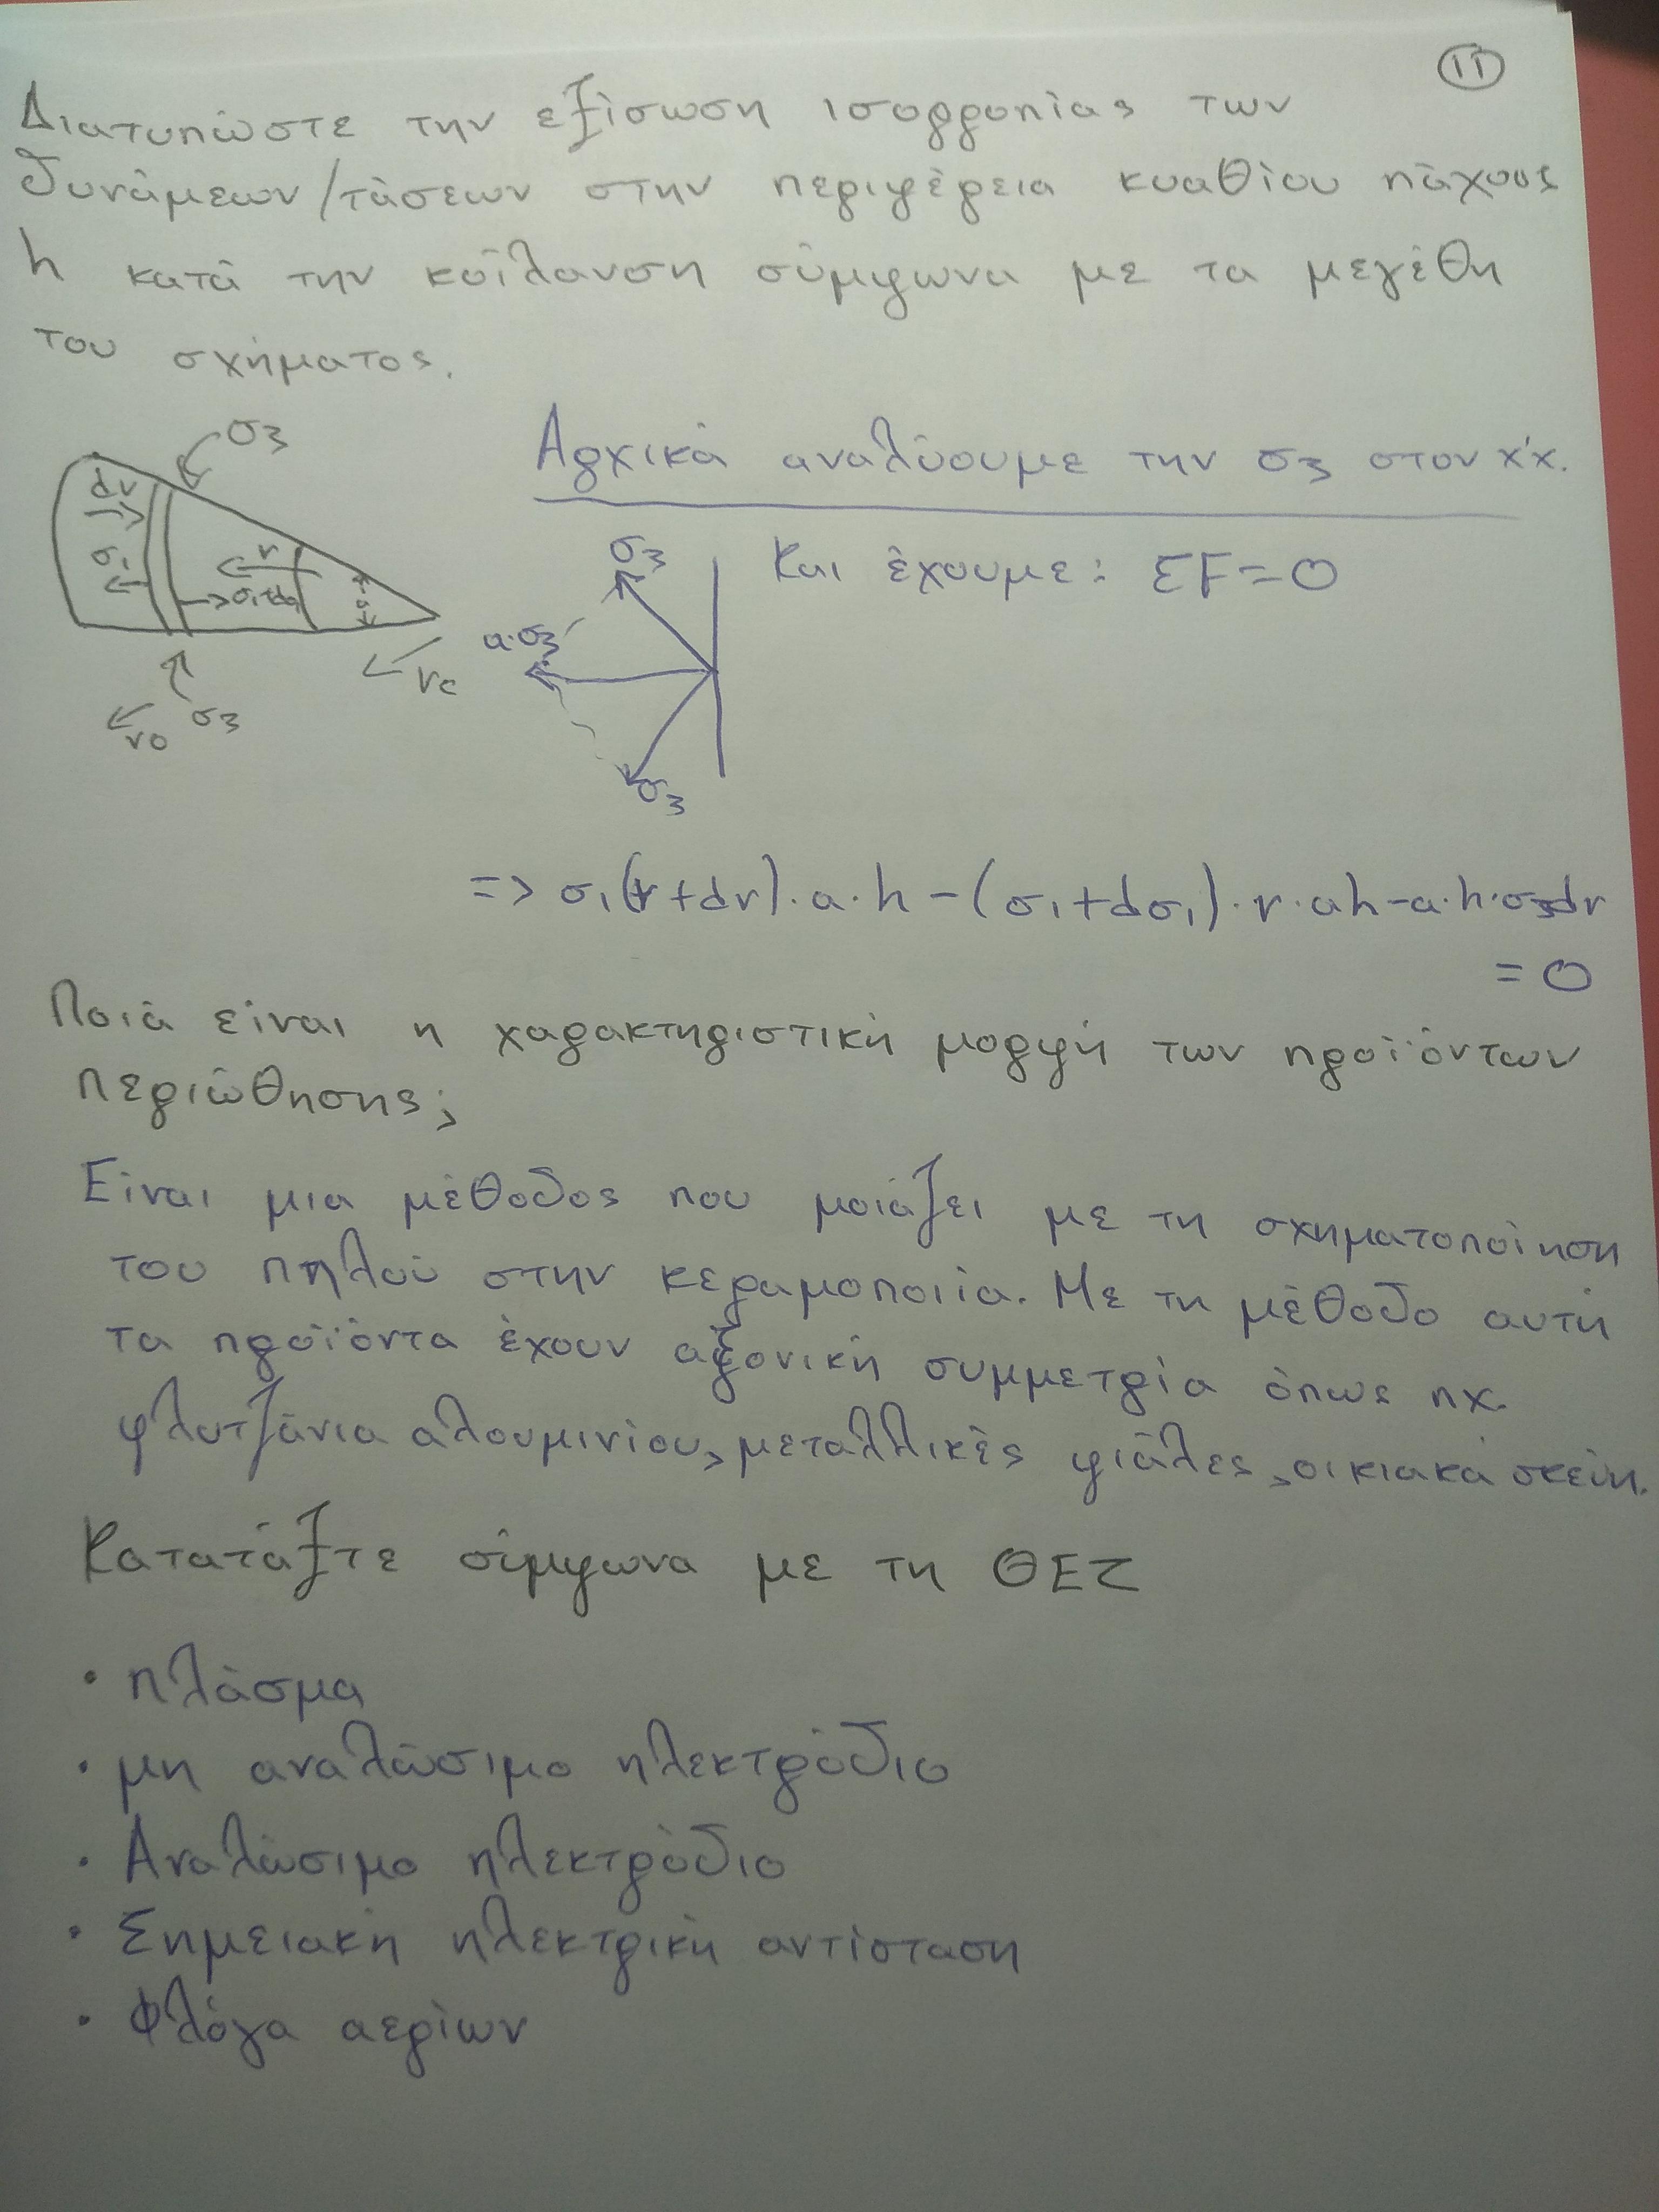 11
Διατυπώστε την εξίσωση ισορροπίας των
δυνάμεων/τάσεων στην περιφέρεια κυαθίου πάχους
h κατά την κοίλανση σύμφωνα με τα μεγέθη
του σχήματος.
σ3
Αρχικά αναλύουμε την σ3 στον x'x.
dr
σ1
r
σ1+dσ1
rc
σ3
r0
σ3
a·σ3
σ3
Και έχουμε: ΣF=0
=> σ1(r+dr)·a·h-(σ1+dσ1)·r·ah-a·h·σ3dr
=0
Ποιά είναι η χαρακτηριστική μορφή των προϊόντων
περιώθησης;
Είναι μια μέθοδος που μοιάζει με τη σχηματοποίηση
του πηλού στην κεραμοποιία. Με τη μέθοδο αυτή
τα προϊόντα έχουν αξονική συμμετρία όπως πχ.
φλυτζάνια αλουμινίου, μεταλλικές φιάλες, οικιακά σκεύη.
Κατατάξτε σύμφωνα με τη ΘΕΖ
• πλάσμα
• μη αναλώσιμο ηλεκτρόδιο
• Αναλώσιμο ηλεκτρόδιο
• Σημειακή ηλεκτρική αντίσταση
• Φλόγα αερίων